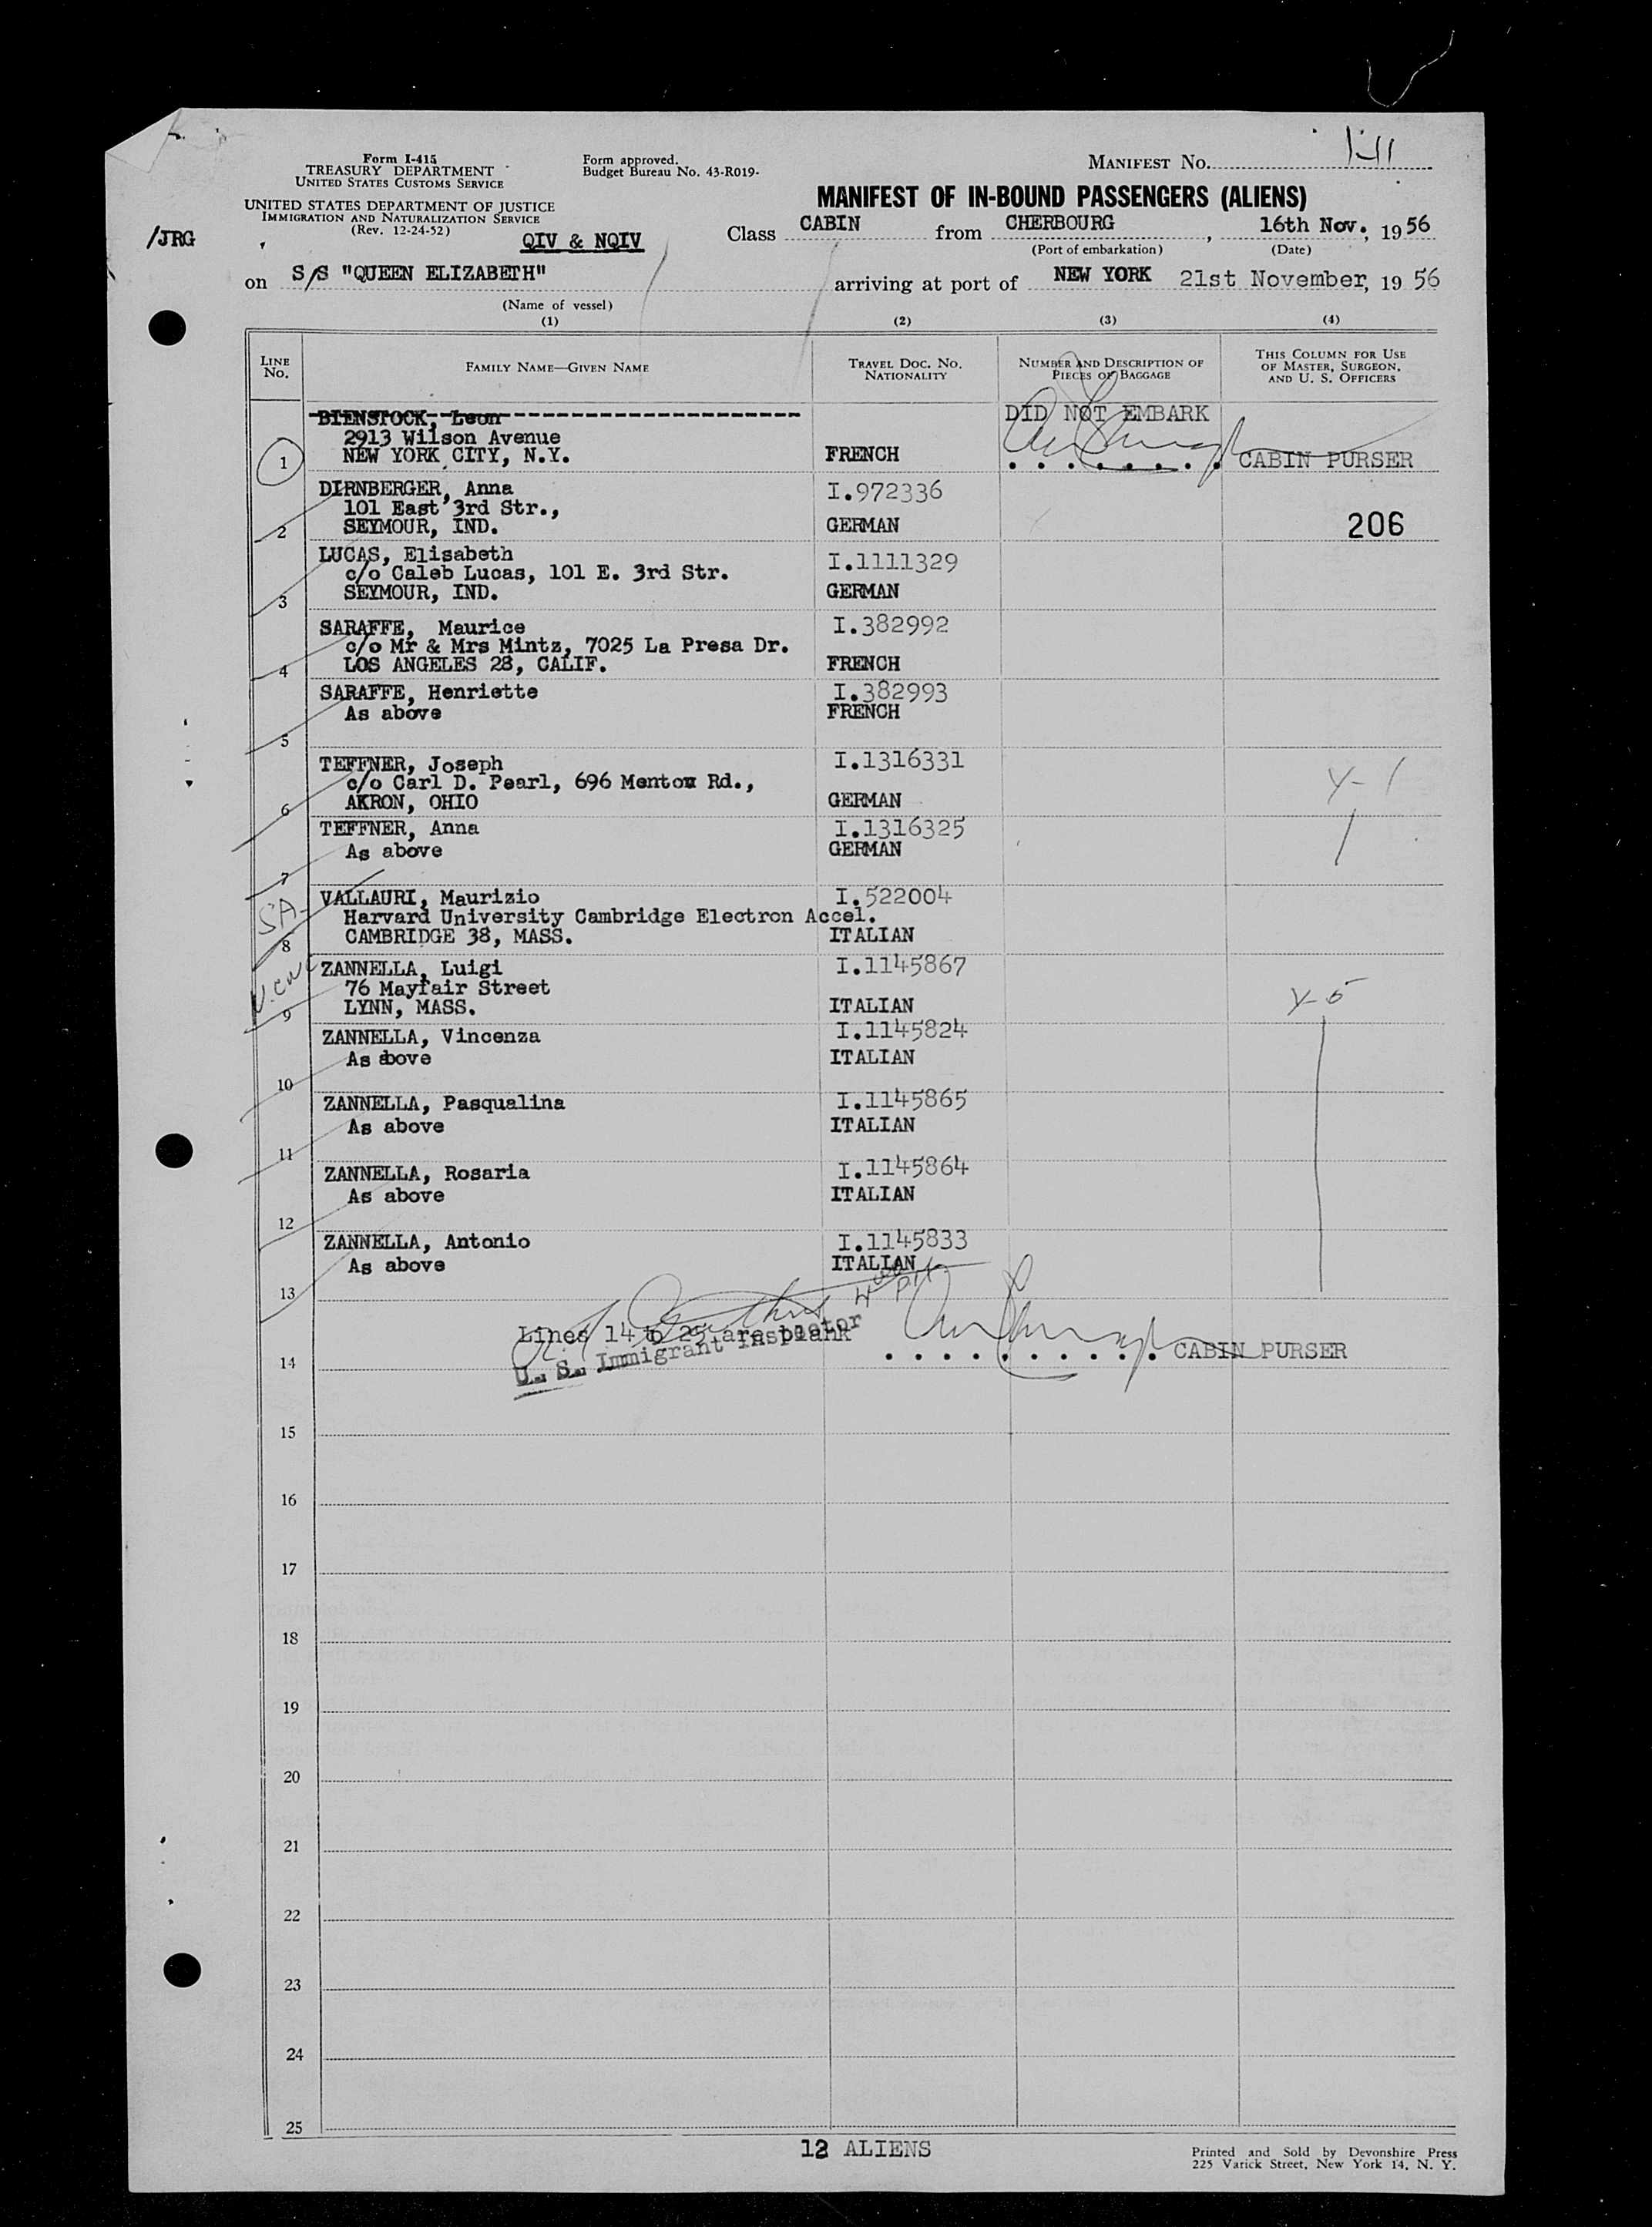 Form I-415
TREASURY DEPARTMENT
UNITED STATES CUSTOMS SERVICE
UNITED STATES DEPARTMENT OF JUSTICE
IMMIGRATION AND NATURALIZATION SERVICE
(Rev. 12-24-52)
Form approved.
Budget Bureau No. 43-R019-
MANIFEST No.
MANIFEST OF IN-BOUND PASSENGERS (ALIENS)
/JRG
QIV & NQIV
Class CABIN from CHERBOURG, 16th Nov., 1956
(Port of embarkation) (Date)
on S/S "QUEEN ELIZABETH" arriving at port of NEW YORK 21st November, 1956
(Name of vessel)
(1) (2) (3) (4)
LINE No. FAMILY NAME—GIVEN NAME TRAVEL DOC. NO. NATIONALITY NUMBER AND DESCRIPTION OF PIECES OF BAGGAGE THIS COLUMN FOR USE OF MASTER, SURGEON, AND U. S. OFFICERS
BIENSTOCK, Leon DID NOT EMBARK
2913 Wilson Avenue
1 NEW YORK CITY, N.Y. FRENCH CABIN PURSER
DIRNBERGER, Anna I.972336
101 East 3rd Str.,
2 SEYMOUR, IND. GERMAN 206
LUCAS, Elisabeth I.1111329
c/o Caleb Lucas, 101 E. 3rd Str.
3 SEYMOUR, IND. GERMAN
SARAFFE, Maurice I.382992
c/o Mr & Mrs Mintz, 7025 La Presa Dr.
4 LOS ANGELES 28, CALIF. FRENCH
SARAFFE, Henriette I.382993
As above FRENCH
5
TEFFNER, Joseph I.1316331
c/o Carl D. Pearl, 696 Menton Rd., Y-1
6 AKRON, OHIO GERMAN
TEFFNER, Anna I.1316325
As above GERMAN
7
SA- VALLAURI, Maurizio I.522004
Harvard University Cambridge Electron Accel.
8 CAMBRIDGE 38, MASS. ITALIAN
ZANNELLA, Luigi I.1145867
76 Mayfair Street Y-5
9 LYNN, MASS. ITALIAN
ZANNELLA, Vincenza I.1145824
As above ITALIAN
10
ZANNELLA, Pasqualina I.1145865
As above ITALIAN
11
ZANNELLA, Rosaria I.1145864
As above ITALIAN
12
ZANNELLA, Antonio I.1145833
As above ITALIAN
13
Lines 14 to 25 are blank
U. S. Immigrant Inspector
14 CABIN PURSER
15
16
17
18
19
20
21
22
23
24
25
12 ALIENS
Printed and Sold by Devonshire Press
225 Varick Street, New York 14, N. Y.